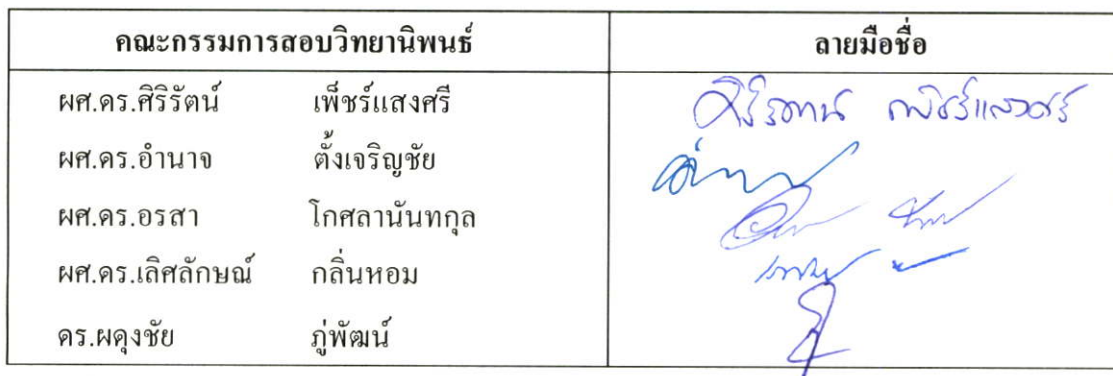 คณะกรรมการสอบวิทยานิพนธ์ ลายมือชื่อ
ผศ.ดร.ศิริรัตน์ เพ็ชร์แสงศรี ศิริรัตน์ เพ็ชร์แสงศรี
ผศ.ดร.อำนาจ ตั้งเจริญชัย
ผศ.ดร.อรสา โกศลานันทกุล
ผศ.ดร.เลิศลักษณ์ กลิ่นหอม
ดร.ผดุงชัย ภู่พัฒน์